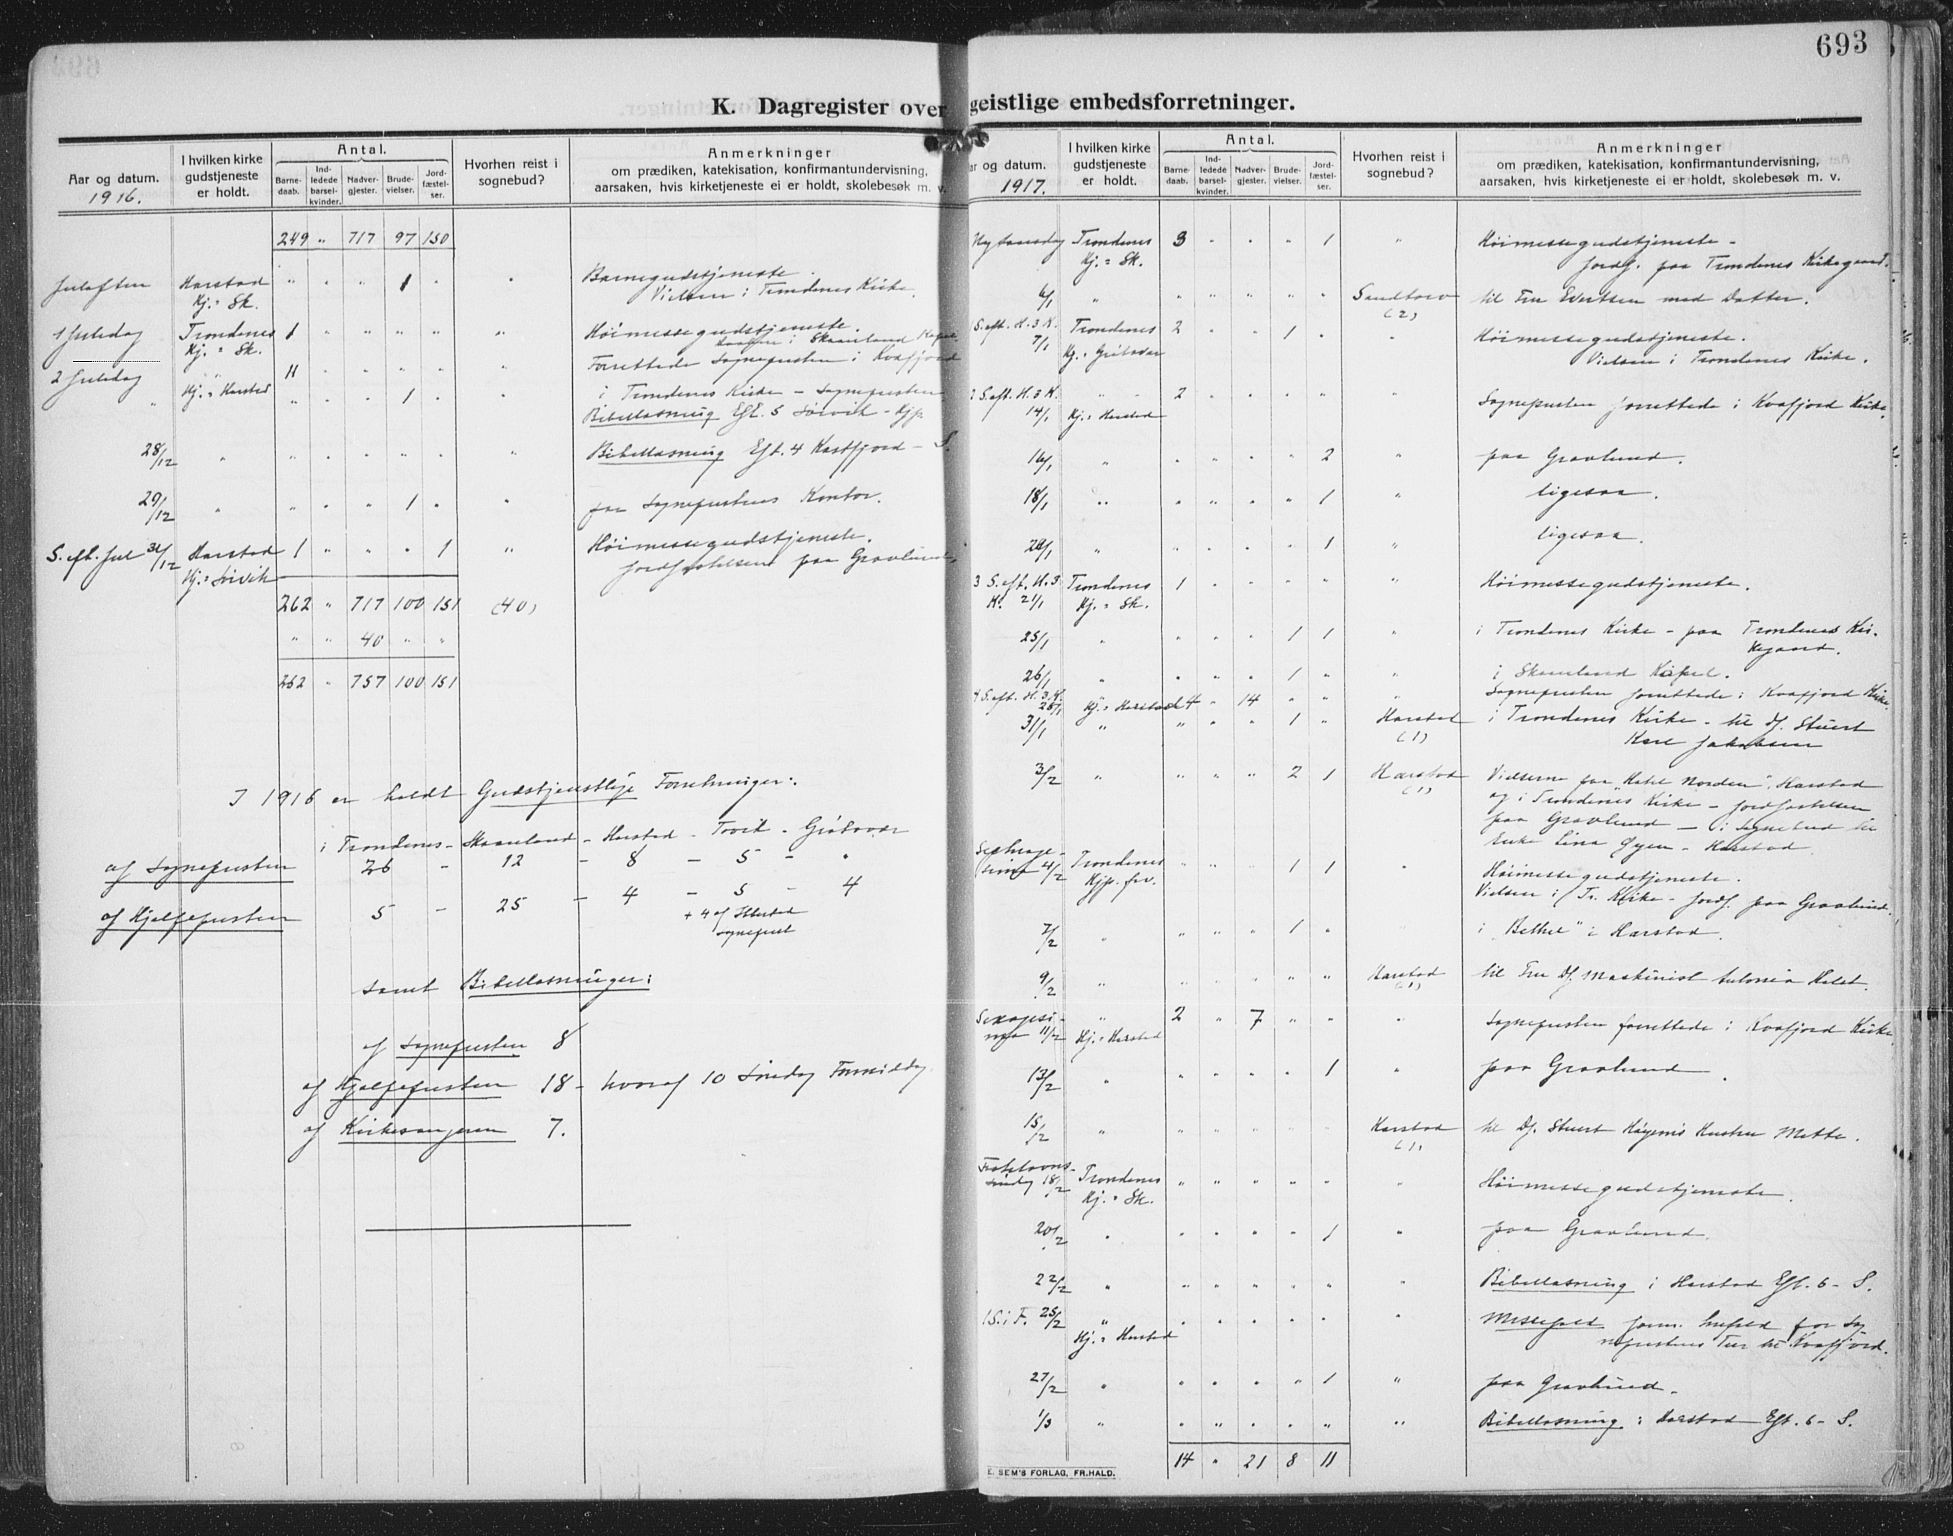 693
K. Dagregister over geistlige embedsforretninger.
Aar og datum.
1916.
I hvilken kirke
gudstjeneste
er holdt.
Antal.
Barne-
daab.
Ind-
ledede
barsel-
kvinder.
Nadver-
gjester.
Brude-
vielser.
Jord-
fæstel-
ser.
Hvorhen reist i
sognebud?
Anmerkninger
om prædiken, katekisation, konfirmantundervisning,
aarsaken, hvis kirketjeneste ei er holdt, skolebesøk m. v.
249 " 717 97 150
Juleaften Harstad " " " 1 " " Barnegudstjeneste.
Hj. = Sk. Vielsen i Trondenes Kirke.
1 Juledag Trondenes 1 " " " " " Høimessegudstjeneste.
Hj. = Sk. i Skaanland Kapel
2 Juledag " 11 " " " " " Forrettede Sognepresten i Kvæfjord
" Hj. = Harstad " " " 1 " " i Trondenes Kirke – Sognepresten
Bibellæsning Eft. 5 Sørvik – Hjp.
28/12 " " " " " " " Bibellæsning Eft. 4 Kasfjord – S.
29/12 " " " " 1 " " paa Sogneprestens Kontor.
S. eft. Jul 31/12 Harstad 1 " " " 1 " Høimessegudstjeneste.
Hj. = Sørvik Jordfæstelsen paa Gravlund.
262 " 717 100 151 (40)
" " 40 " "
262 " 757 100 151
I 1916 er holdt Gudstjenstlige Forretninger:
i Trondenes – Skaanland – Harstad – Tovik – Grøtavær
af Sognepresten 26 – 12 – 8 – 5 – "
af Hjelpepresten 5 – 25 – 4 – 5 – 4
+ 4 af Ibestad
Sogneprest
samt Bibellæsninger:
af Sognepresten 8
af Hjelpepresten 18 – hvoraf 10 Søndag Formiddag
af Kirkesangeren 7.
Aar og datum.
1917.
I hvilken kirke
gudstjeneste
er holdt.
Antal.
Barne-
daab.
Ind-
ledede
barsel-
kvinder.
Nadver-
gjester.
Brude-
vielser.
Jord-
fæstel-
ser.
Hvorhen reist i
sognebud?
Anmerkninger
om prædiken, katekisation, konfirmantundervisning,
aarsaken, hvis kirketjeneste ei er holdt, skolebesøk m. v.
Nytaarsdag Trondenes 3 " " " 1 " Høimessegudstjeneste –
Hj. = Sk. Jordf. paa Trondenes Kirkegaard.
6/1 " " " " " " Sandtorv til Fru Evertsen med Datter.
(2)
S. eft. H. 3 K. Trondenes 2 " " 1 " " Høimessegudstjeneste.
7/1 Hj. = Grøtavær Vielsen i Trondenes Kirke.
2 S. eft. H. 3 K. " 2 " " " " " Sognepresten forrettede i Kvæfjord Kirke.
14/1 Hj. = Harstad
16/1 " " " " " 2 " paa Gravlund.
18/1 " " " " " 1 " ligesaa.
20/1 " " " " " 1 " ligesaa.
3 S. eft. H. 3 Trondenes 1 " " " " " Høimessegudstjeneste.
K. 21/1 Hj. = Sk.
25/1 " " " " 1 1 " i Trondenes Kirke – paa Trondenes Kir-
kegaard.
26/1 " " " 1 " " i Skaanland Kapel.
4 S. eft. H. 3. K. Hj. = Harstad 4 " 14 " " " Sognepresten forrettede i Kvæfjord Kirke.
28/1
31/1 " " " " 1 " Harstad i Trondenes Kirke – til Df. Stuert
(1) Karl Jakobsen
3/2 " " " " 2 1 Harstad Vielserne paa "Hotel Norden", Harstad
(1) og i Trondenes Kirke – Jordfæstelsen
paa Gravlund – i Sognebud til
Enke Lina Øyen – Harstad.
Septuage-
sima 4/2 Trondenes " " " 1 1 Høimessegudstjeneste.
Hjp. frv. Vielsen i Tr. Kirke – Jordf. paa Gravlund.
7/2 " " " " 1 " " i "Bethel" i Harstad.
9/2 " " " " " " Harstad til Fru Df. Maskinist Antonia Holst.
(1)
Sexagesi- " 2 " 7 " " " Sognepresten forrettede i Kvæfjord Kirke.
ma 11/2 Hj. = Harstad
13/2 " " " " " 1 " paa Gravlund.
15/2 " " " " " " Harstad til Df. Stuert Hustru Mette.
(1)
Fastelavns-
søndag 18/2 Trondenes " " " " " " Høimessegudstjeneste.
Hj. = Sk.
20/2 " " " " " 1 " paa Gravlund.
22/2 " " " " " " " Bibellæsning i Harstad Eft. 6 – S.
1 S. i F. 25/2 " " " " " " " Messefald for Sog-
Hj. = Harstad neprestens Tur til Kvæfjord.
27/2 " " " " " 1 " paa Gravlund.
1/3 " " " " " " " Bibellæsning i Harstad Eft. 6 – S.
14 " 21 8 11
E. SEM'S FORLAG, FR.HALD.